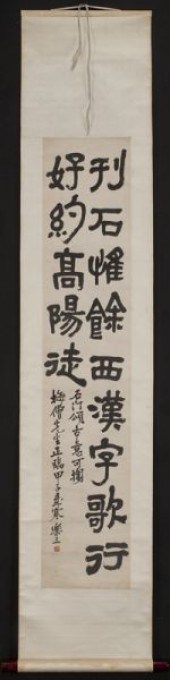 刊石惟餘西漢字歌行
好約高陽徒
石門頌古意可掬
梅僧先生正臨甲子歲寒